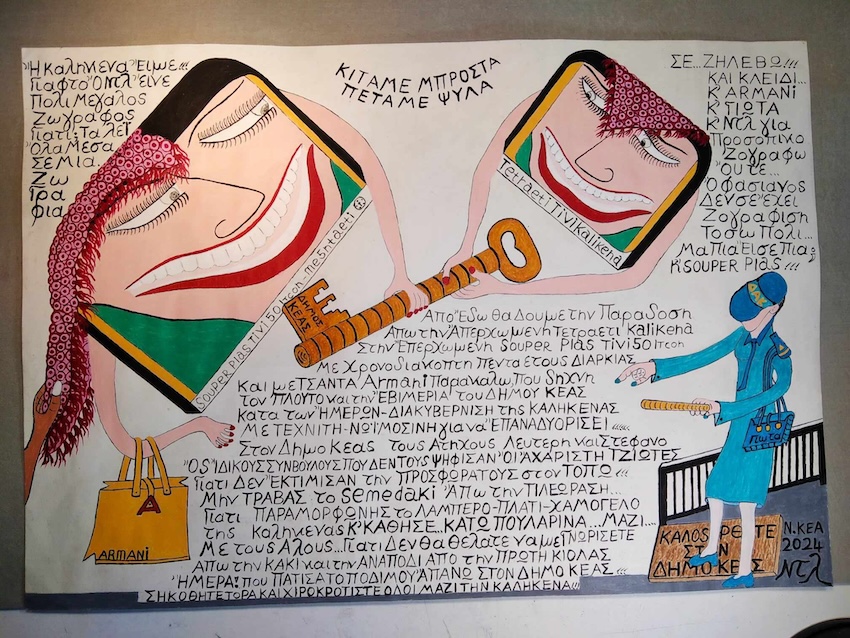 "Η Καληκενα "Ειμε...!!!
Γιαφτο "Ο ΝτΛ "Είνε
Πολι Μεγαλος
Ζωγραφος
Γιατι: Τα Λεϊ
"Ολα Μεσα
ΣΕ ΜΙΑ...
Ζω
Γρα
Φια
ΚΙΤΑΜΕ ΜΠΡΟΣΤΑ
ΠΕΤΑΜΕ ΨΥΛΑ
ΣΕ... ΖΗΛΕΒΩ!!!
ΚΑΙ ΚΛΕΙΔΙ...
Κ' ARMANI
Κ' ΓΙΩΤΑ
Κ' ΝτΛ για
Προσοπικο
Ζογραφω
"Ουτε...
Ο Φασιανος
ΔΕΝ ΣΕ "ΕΧΕΙ
Ζογραφιση
Τοσω Πολι...
Μα Πια "Εισε Πια;
Κ' SOUPER Plas!!!
SOUPER Plas tivi 50 Itcon - me 5 ntaeti
Tetraeti Tivi Kalikena
ΔΗΜΟΣ
ΚΕΑΣ
Απο "Εδω θα Δουμε την Παραδοση
Απω την "Απερχωμενη Τετραετι Kalikena
Στην "Επερχωμενη Souper Plas Tivi 50 Itcon
ΜΕ ΧΡΟΝΟΔΙΑΚΟΠΤΗ ΠΕΝΤΑ ΕΤΟΥΣ ΔΙΑΡΚΙΑΣ
Και με ΤΣΑΝΤΑ Armani Παρακαλω, Που Δηχνη
τον ΠΛΟΥΤΟ και την "ΕΒΙΜΕΡΙΑ του ΔΗΜΟΥ ΚΕΑΣ
κατα των "ΗΜΕΡΩΝ - ΔΙΑΚΥΒΕΡΝΙΣΗ της ΚΑΛΗΚΕΝΑΣ
ΜΕ ΤΕΧΝΙΤΗ - ΝΟ"ΙΜΟΣΙΝΗ για να "ΕΠΑΝΑΔΥΟΡΙΣΕΙ
Στον Δημο Κεας τους Ατηχους Λευτερη και Στεφανο
"ΟΣ "ΙΔΙΚΟΥΣ ΣΥΝΒΟΥΛΟΥΣ ΠΟΥ ΔΕΝ ΤΟΥΣ ΨΗΦΙΣΑΝ "ΟΙ ΑΧΑΡΙΣΤΗ ΤΖΙΩΤΕΣ
Γιατι Δεν "ΕΚΤΙΜΙΣΑΝ ΤΗΝ ΠΡΟΣΦΩΡΑ ΤΟΥΣ ΣΤΟΝ ΤΟΠΩ
ΜΗΝ ΤΡΑΒΑΣ το semedaki "Απω την ΠΛΕΩΡΑΣΗ...
Γιατι ΠΑΡΑΜΟΡΦΩΝΗΣ το ΛΑΜΠΕΡΟ-ΠΛΑΤΙ-ΧΑΜΟΓΕΛΟ
της καληκενας Κ'ΚΑΘΗΣΕ..ΚΑΤΩ ΠΟΥΛΑΡΙΝΑ...ΜΑΖΙ...
Με τους Αλους...Γιατι Δεν θα θελατε να με ΓΝΩΡΙΣΕΤΕ
Απω την ΚΑΚΙ και την ΑΝΑΠΟΔΙ ΑΠΟ ΤΗΝ ΠΡΩΤΗ ΚΙΟΛΑΣ
"ΗΜΕΡΑ! που ΠΑΤΙΣΑ ΤΟ ΠΟΔΙ ΜΟΥ "ΑΠΑΝΩ ΣΤΟΝ ΔΗΜΟ ΚΕΑΣ
ΣΗΚΟΘΗΤΕ ΤΟΡΑ ΚΑΙ ΧΙΡΟΚΡΟΤΙΣΤΕ ΟΛΟΙ ΜΑΖΙ ΤΗΝ ΚΑΛΗΚΕΝΑ!!!
A
ARMANI
Γιωτα
ΚΑΛΟΣ ΡΘΤΕ
ΣΤΟΝ
ΔΗΜΟ ΚΕΟΣ
Ν. ΚΕΑ
2024
ΝΤΛ